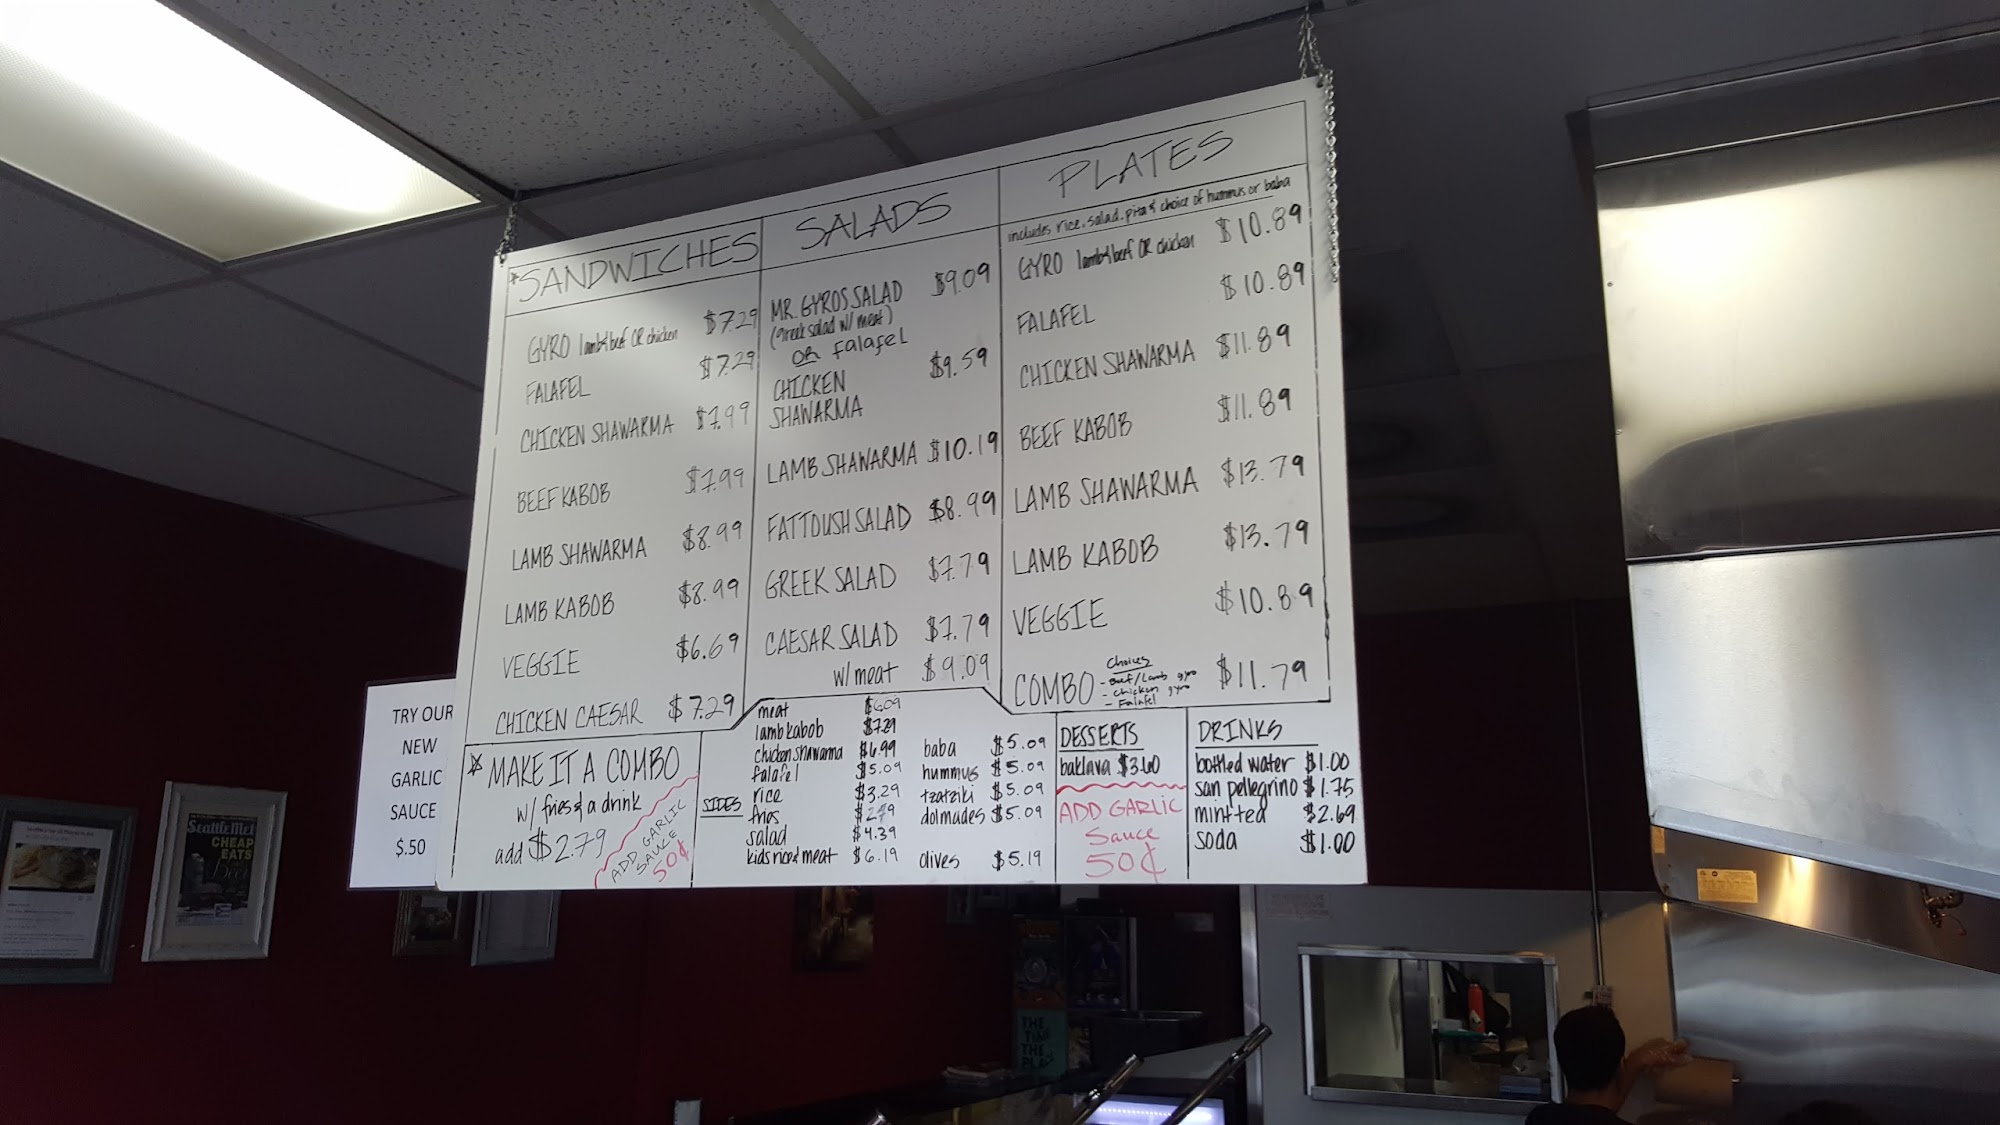 *SANDWICHES
GYRO lamb/beef OR chicken $7.29
FALAFEL $7.29
CHICKEN SHAWARMA $7.99
BEEF KABOB $7.99
LAMB SHAWARMA $8.99
LAMB KABOB $8.99
VEGGIE $6.69
CHICKEN CAESAR $7.29
SALADS
MR. GYROS SALAD $9.09
(greek salad w/ meat)
OR falafel
CHICKEN $9.59
SHAWARMA
LAMB SHAWARMA $10.19
FATTOUSH SALAD $8.99
GREEK SALAD $7.79
CAESAR SALAD $7.79
w/ meat $9.09
PLATES
includes rice, salad, pita & choice of hummus or baba
GYRO lamb/beef OR chicken $10.89
FALAFEL $10.89
CHICKEN SHAWARMA $11.89
BEEF KABOB $11.89
LAMB SHAWARMA $13.79
LAMB KABOB $13.79
VEGGIE $10.89
COMBO $11.79
Choices
- Beef/Lamb gyro
- Chicken gyro
- Falafel
* MAKE IT A COMBO
w/ fries & a drink
add $2.79
ADD GARLIC
SAUCE
50¢
SIDES
meat $6.09
lamb kabob $7.29
chicken shawarma $6.99
falafel $5.09
rice $3.29
fries $2.79
salad $4.39
kids rice & meat $6.19
baba $5.09
hummus $5.09
tzatziki $5.09
dolmades $5.09
olives $5.19
DESSERTS
baklava $3.60
ADD GARLIC
Sauce
50¢
DRINKS
bottled water $1.00
san pellegrino $1.75
mint tea $2.69
soda $1.00
TRY OUR
NEW
GARLIC
SAUCE
$.50
SeattleMet
CHEAP
EATS